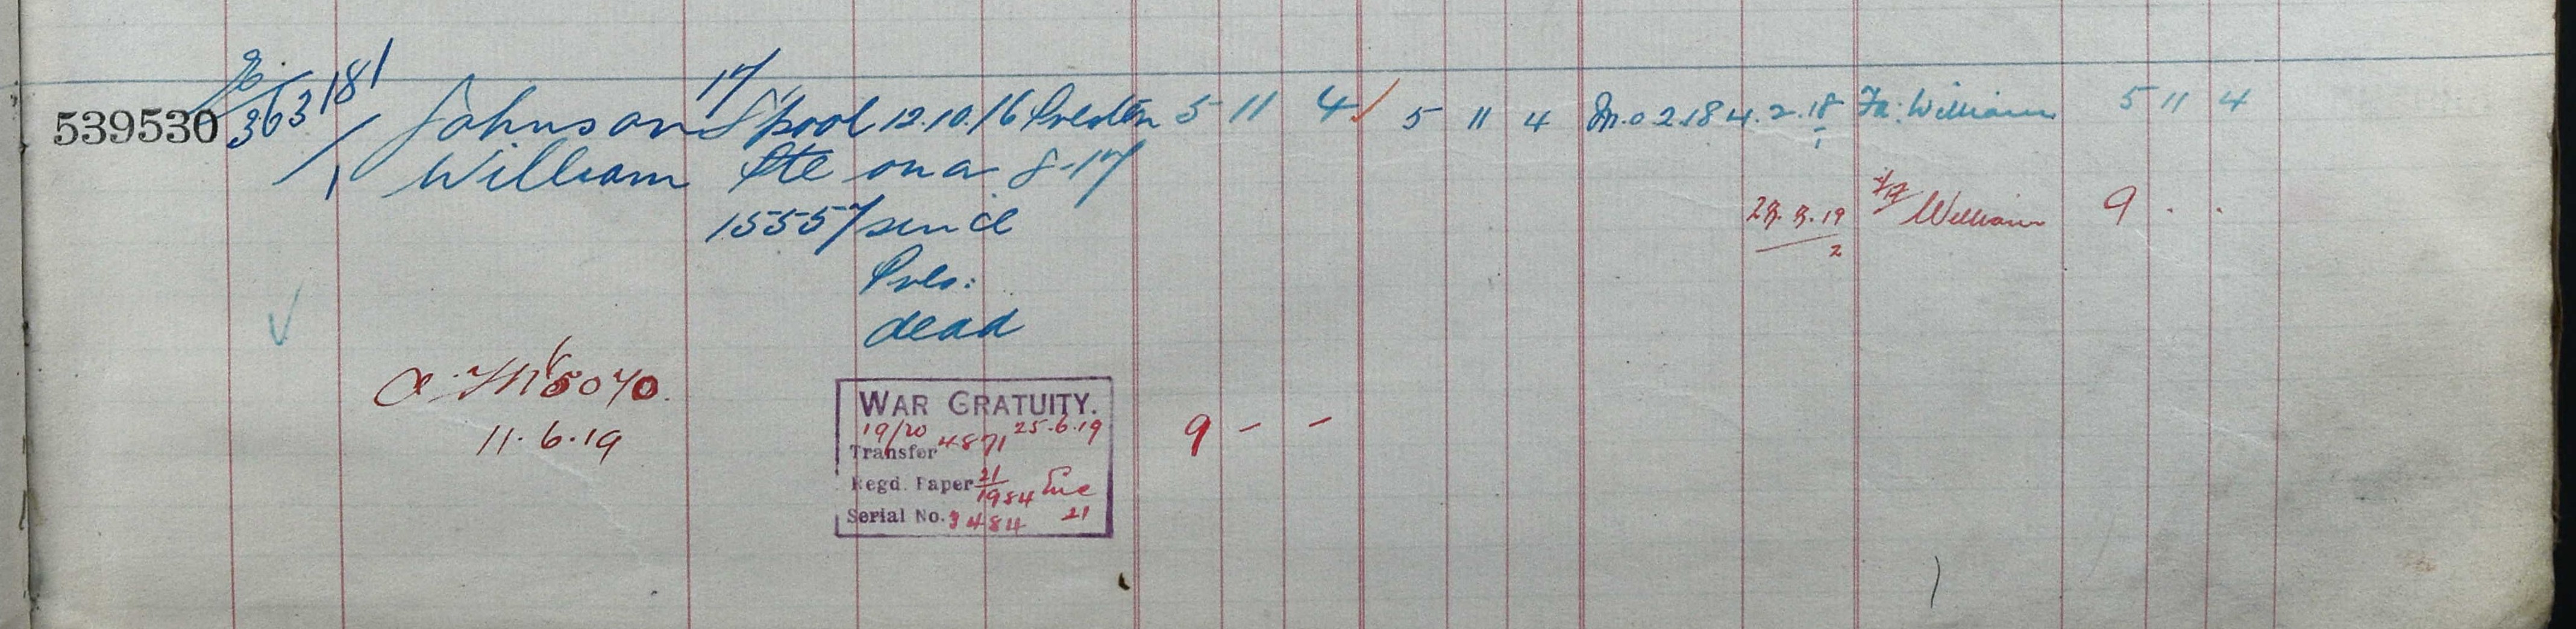 539530 E. 363181 Johnson 17/ L'pool 12.10.16 Preston 5 11 4 5 11 4 2.18 4.2.18 Fa: William 5 11 4
1 William Pte on or 8-17 1
15557 since
Pres:
dead
28.8.19 William 9 . .
2
5070.
11.6.19
WAR GRATUITY.
19/20 4871 25.6.19
Transfer
Regd. Paper 21/1984
Serial No. 3484 21
9 - -